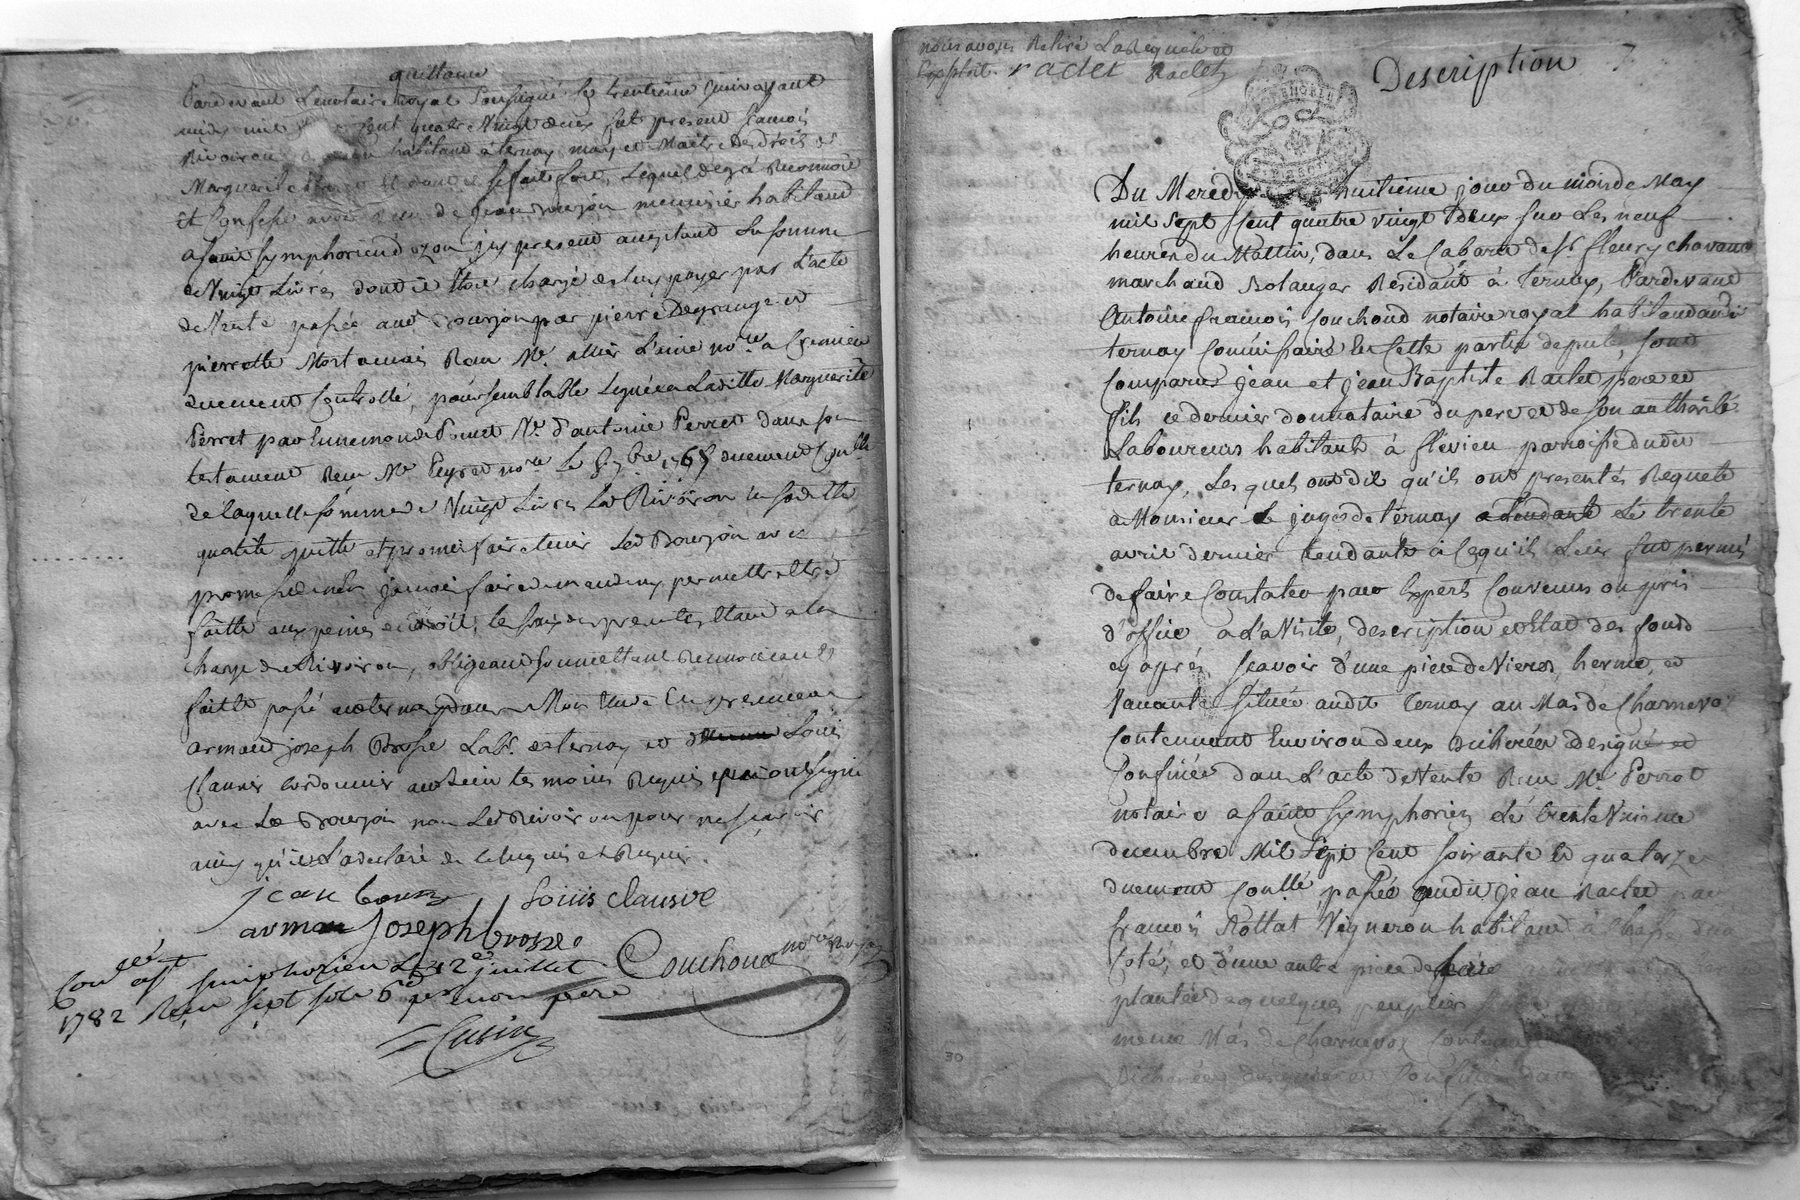 quittance
Pardevant Le notaire royal soussigné le trentieme juin avant
midy mil sept cent quatre vingt deux fut present francois
Rivoiron habitant a ternay mary et Maitre Des droits de
Marguerite Perret Lequel de gré Reconnoit
Et Confesse avoir Receu de jean bourjon meunier habitant
a saint symphorien d'ozon icy present acceptant La somme
de Vingt Livres dont il étoit chargé de luy payer par L'acte
de Vente passée audit Bourjon par pierre Degrange et
pierrette Mortamais Receu Me allier L'ainé nore a Cremieu
duement Controllé, pour semblable Leguée a Laditte Marguerite
Perret par Ve d'antoine Perret dans son
testament Receu Me Peyret nore Le 1765 duement
de laquelle somme de Vingt Livres Led Rivoiron en sa ditte
qualité quitte et promet faire tenir Led Bourjon avec
promesse de n'en jamais faire demande ny permettre etre
faitte aux peines de droit, les frais des presentes etant a la
charge de Rivoiron, obligeant soumettant Renonceant &
fait et passé audit ternay dans Mon Etude En presence de
armand joseph Brosse Labr. de ternay et de Louis
Clausve cordonnier audit lieu temoins Requis qui ont signé
avec Led Bourjon non Led Rivoiron pour ne sçavoir
ainsy qu'il L'a declaré de ce enquis et Requis.
jean bourjon Louis clausve
arman Joseph brosse
Couchoud nore Royal
Conlé a st simphorien Le 12e juillet
1782 Reçu sept sols 6d per mon pere
Cusin
nous avons Retiré La Requete et
L'exploit. raclet Raclet
Description
7
Du Meredy huitieme jour du mois de May
mil sept sent quatre vingt Deux sur Les neuf
heures du Mattin, dans Le Cabaret de sr. fleury chavant
marchand Bolanger Residant à Ternay, Pardevant
Antoine francois Couchoud notaire royal habitant audit
ternay Commissaire En Cette partie deputé, sont
Comparus jean et jean Baptiste Raclet pere et
fils ce dernier donnataire du pere et de son authorité
Laboureurs habitants à flevieu parroisse dudit
ternay, Lesquels ont dit qu'ils ont presentés Requete
a Monsieur Le juge de Ternay a tendante Le trente
avril dernier tendante à Ce qu'il Leur fut permis
de faire Constater par Experts Convenus ou pris
d'office a La Visite, description et Etat des fonds
cy après sçavoir d'une piece de Vieres, herme, et
Vacante située audit Ternay au Mas de Charnevoz
Contennant Environ deux Bicherées designé et
Confinée dans L'acte de Vente Receu Me Perrot
notaire a saint symphorien Le trente Unieme
decembre Mil Sept Cent soixante et quatorze
duement Conllé, passée audit jean Raclet par
francois Rottat Vigneron habitant à
Coté, et d'une autre piece de
plantée de quelques peuplier
meme Mas de Charnevoz Contenant
Bicherées Confinée dans
30